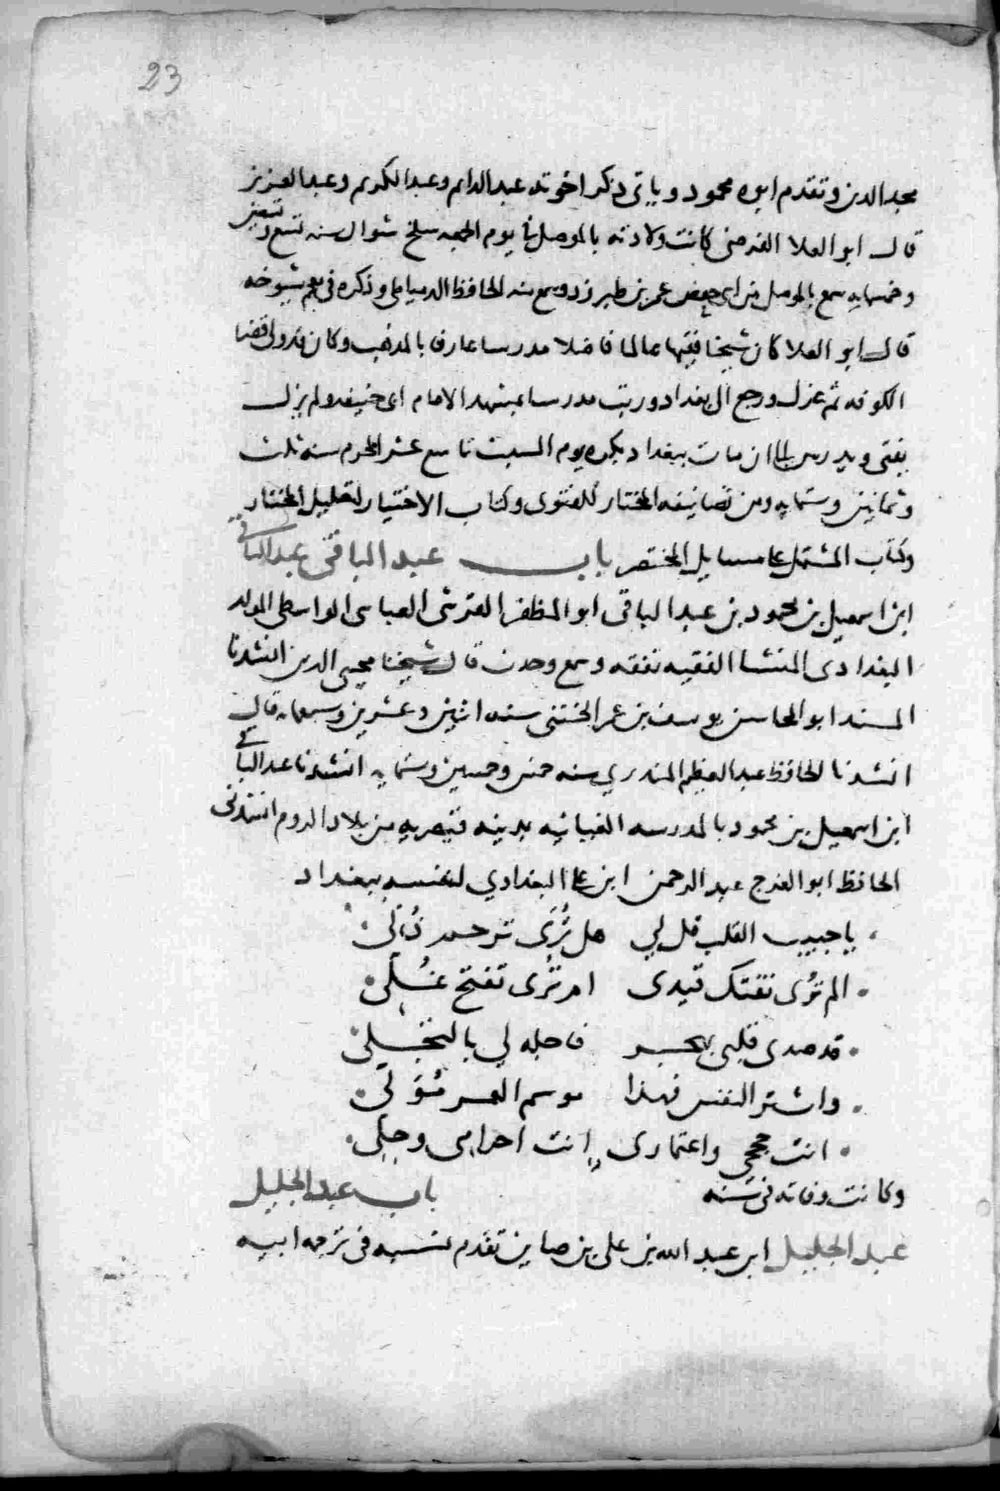 23
مجد الدين وتقدم ابوه محمود وياتى ذكر اخوته عبد الدايم وعبد الكريم وعبد العزيز
قال ابو العلا الفرضى كانت ولادته بالموصل فى يوم الجمعه سلخ شوال سنه تسع وتسعين
وخمسمايه سمع بالموصل من ابى حفص عمر بن طبرزد وسمع منه الحافظ الدمياطى وذكره فى معجم شيوخه
قال ابو العلا كان شيخا فقيها عالما فاضلا مدرسا عارفا بالمذهب وكان قد ولى قضا
الكوفه ثم عزل ورجع الى بغداد ورتب مدرسا بمشهد الامام ابى حنيفه ولم يزل
يفتى ويدرس الى ان مات ببغداد بكره يوم السبت تاسع عشر المحرم سنه ثلث
وثمانين وستمايه ومن تصانيفه المختار للفتوى وكتاب الاختيار لتعليل المختار
وكتاب المشتمل على مسايل المختصر باب عبد الباقى عبد الباقى
ابن اسمعيل بن محمود بن عبد الباقى ابو المظفر القرشى العباسى الواسطى المولد
البغدادى المنشا الفقيه تفقه وسمع وحدث قال شيخنا محيى الدين انشدنا
المسند ابو المحاسن يوسف بن عمر الختنى سنه اثنين وعشرين وسبعمايه قال
انشدنا الحافظ عبد العظيم المنذري سنه خمس وخمسين وستمايه انشدنا عبد الباقى
ابن اسمعيل بن محمود بالمدرسه الغياثيه بمدينه قيصريه من بلاد الروم انشدنى
الحافظ ابو الفرج عبد الرحمن ابن على البغدادي لنفسه ببغداد
يا حبيب القلب قل لي هل تُرى ترحم ذُلّى
الم تُرى تفتك قيدى ام تُرى تفتح غُلّى
قد صدى قلبى بهجر فاجله لي بالتجلى
واشتر النفس فهذا موسم العمر تولّى
انت حجى واعتمارى انت احرامى وحلّى
وكانت وفاته فى سنه باب عبد الجليل
عبد الجليل ابن عبد الله بن على بن صاين تقدم نسبه فى ترجمه ابيه